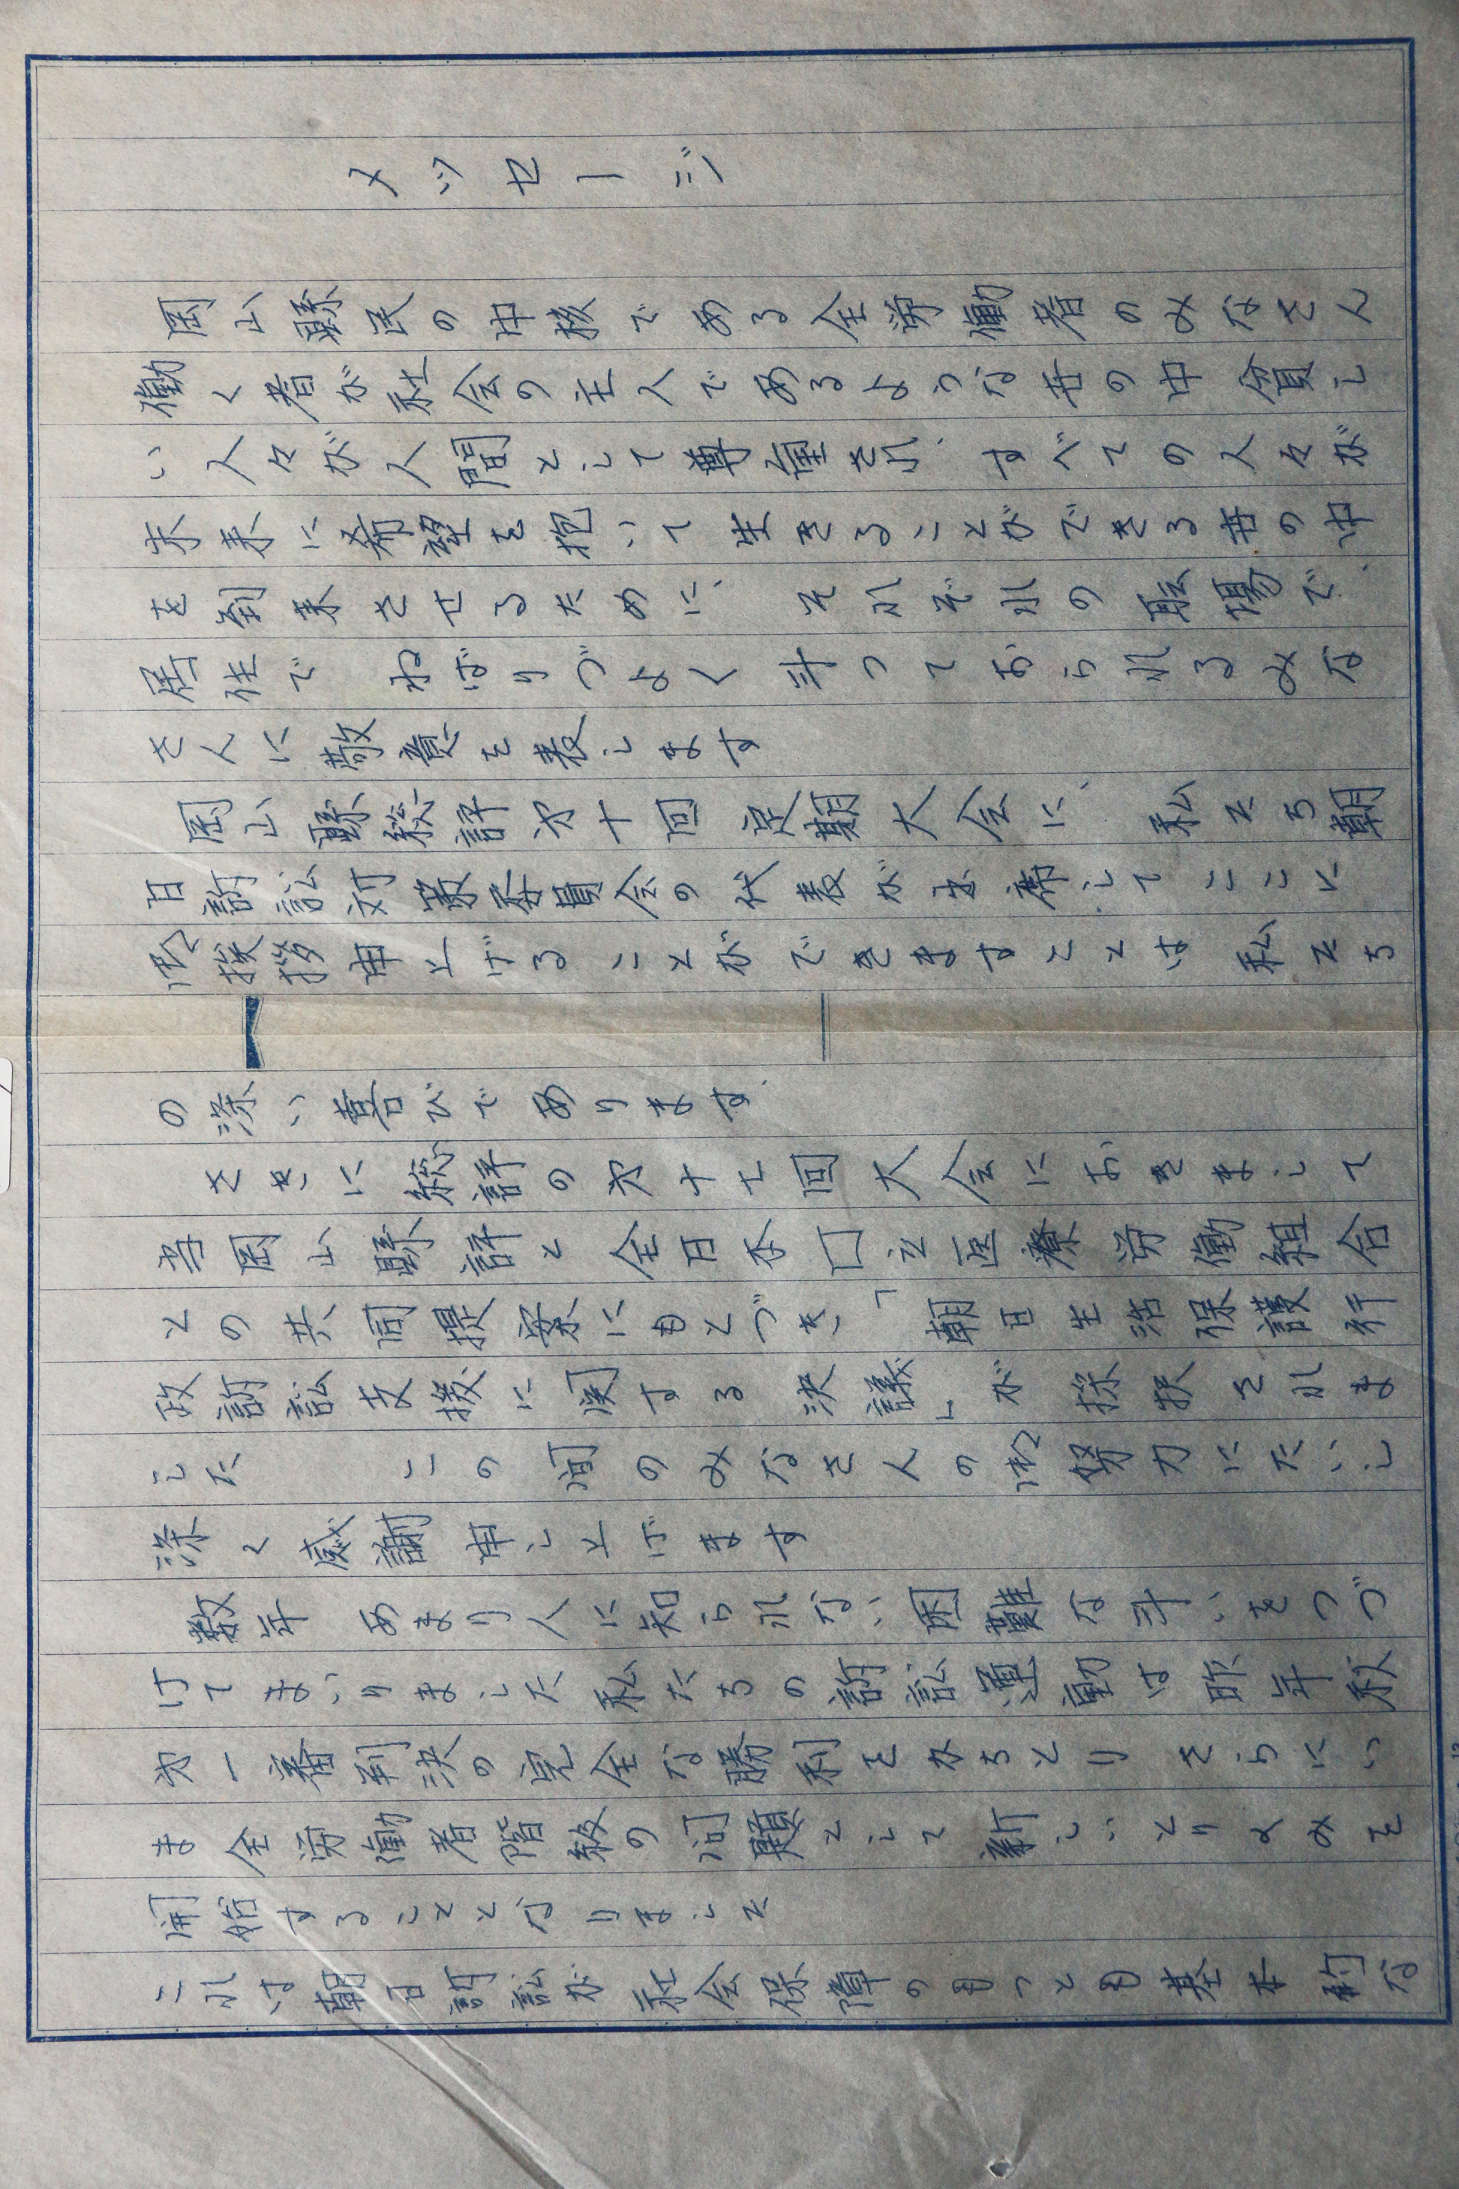 メッセージ
岡山縣民の中核である全労働者のみなさん
働く者が社会の主人であるような世の中 貧し
い人々が人間として尊重され、すべての人々が
未来に希望を抱いて生きることができる世の中
を到来させるために、それぞれの職場で、
居住で ねばりづよく斗っておられるみな
さんに敬意を表します
岡山縣総評才十回定期大会に、私たち朝
日訴訟対策委員会の代表が出席して ここに
御挨拶申上げることができますことは 私たち
の深い喜びであります
さきに総評の才十七回大会におきまして
当岡山縣評と全日本口立医療労働組合
との共同提案にもとづき、「朝日生活保護行
政訴訟支援に関する決議」が採択されま
した この間のみなさんの御努力にたいし
深く感謝申し上げます
数年 あまり人に知られない困難な斗いをつづ
けてまいりました私たちの訴訟運動は昨年秋
才一審判決の完全な勝利をかちとり さらにい
ま全労働者階級の問題として新しいとりくみを
開始することとなりました
これは朝日訴訟が社会保障のもっとも基本的な